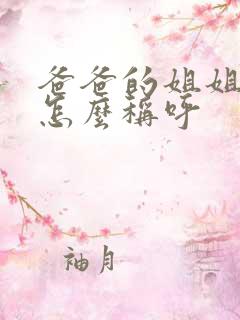 爸爸的姐姐
怎麼稱呼
袖月